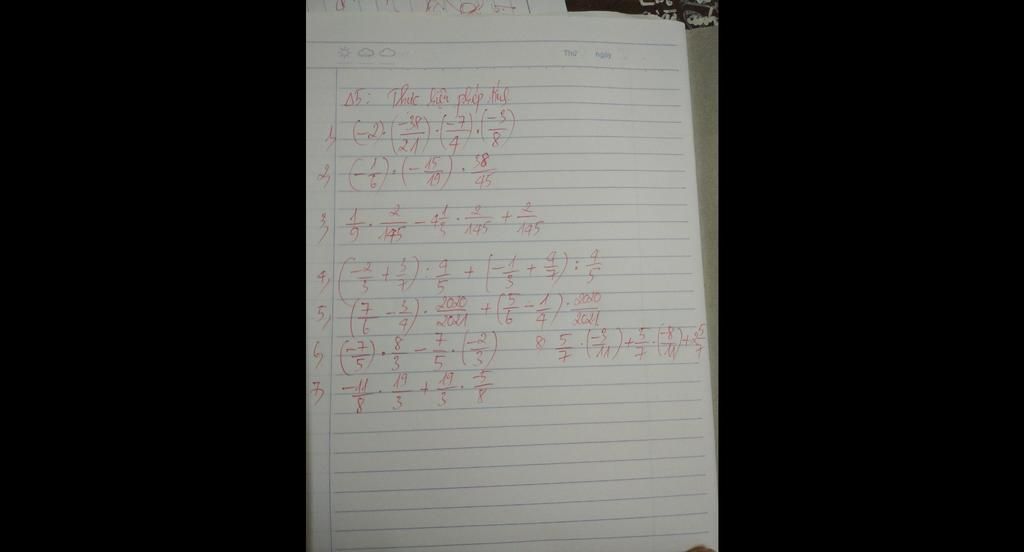 Thứ ngày
Δ5: Thực hiện phép tính
1, (-2) · (-38/21) · (-7/4) · (-3/8)
2, (-1/6) · (-15/19) · 38/45
3, 1/9 · 2/145 - 4 1/3 · 2/145 + 2/145
4, (-2/3 + 3/7) : 4/5 + (-1/3 + 4/7) : 4/5
5, (7/6 - 3/4) · 2020/2021 + (5/6 - 1/4) · 2020/2021
6, (-7/5) · 8/3 - 7/5 · (-2/3)
8, 5/7 · (-3/11) + 5/7 · (-8/11) + 5/7
7, -11/8 · 19/3 + 19/3 · -5/8